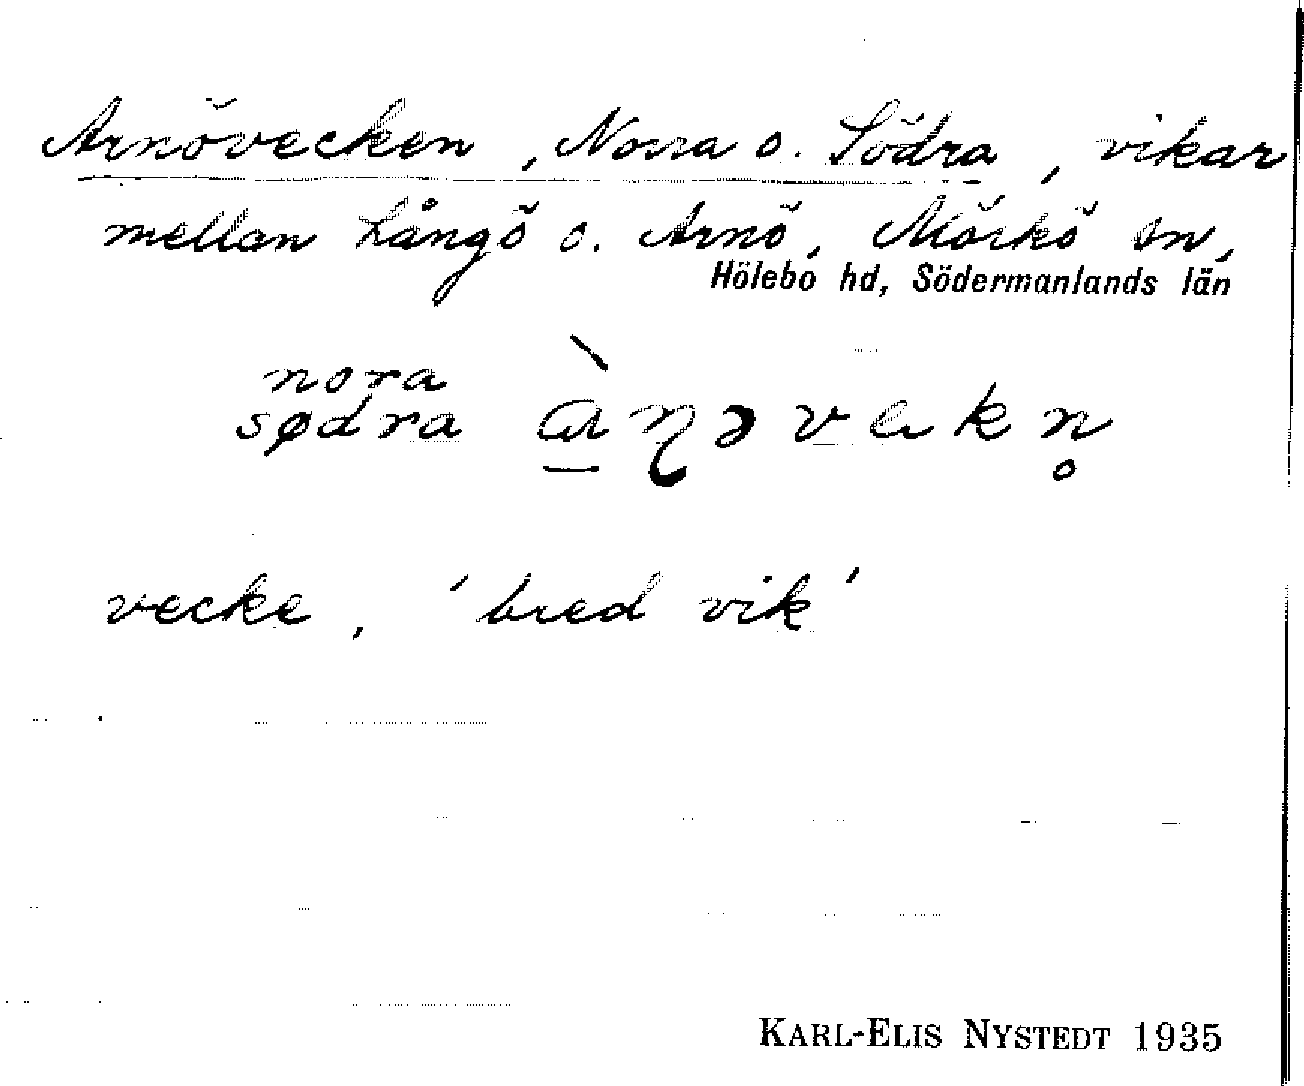 Arnövecken, Norra o. Södra, vikar
mellan Långö o. Arnö, Mörkö sn,
Hölebo hd, Södermanlands län
nora
sødra àɳəvekn̥
vecke, 'bred vik'
KARL-ELIS NYSTEDT 1935